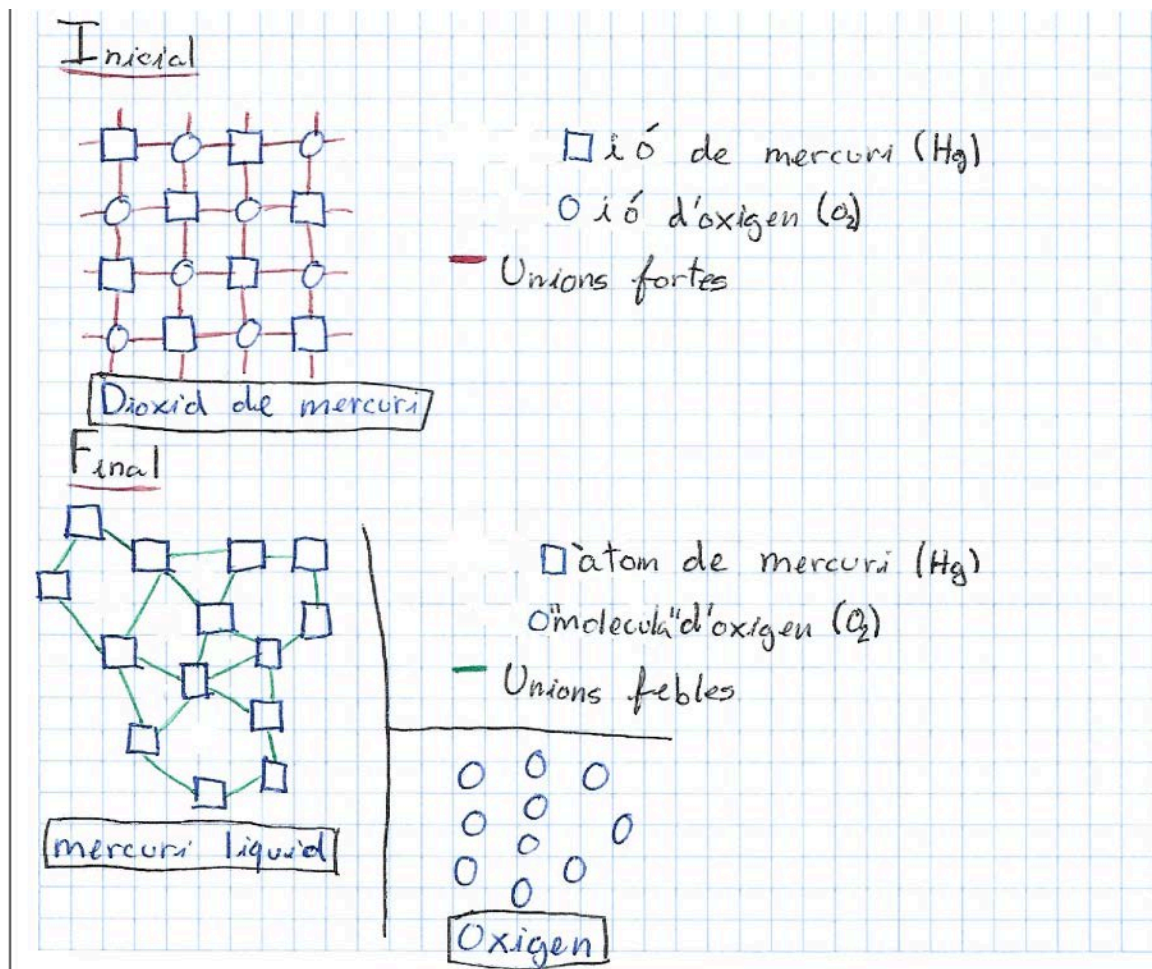 Inicial
ió de mercuri (Hg)
ió d'oxigen (O₂)
Unions fortes
Dioxid de mercuri
Final
àtom de mercuri (Hg)
"molecula" d'oxigen (O₂)
Unions febles
mercuri liquid
Oxigen